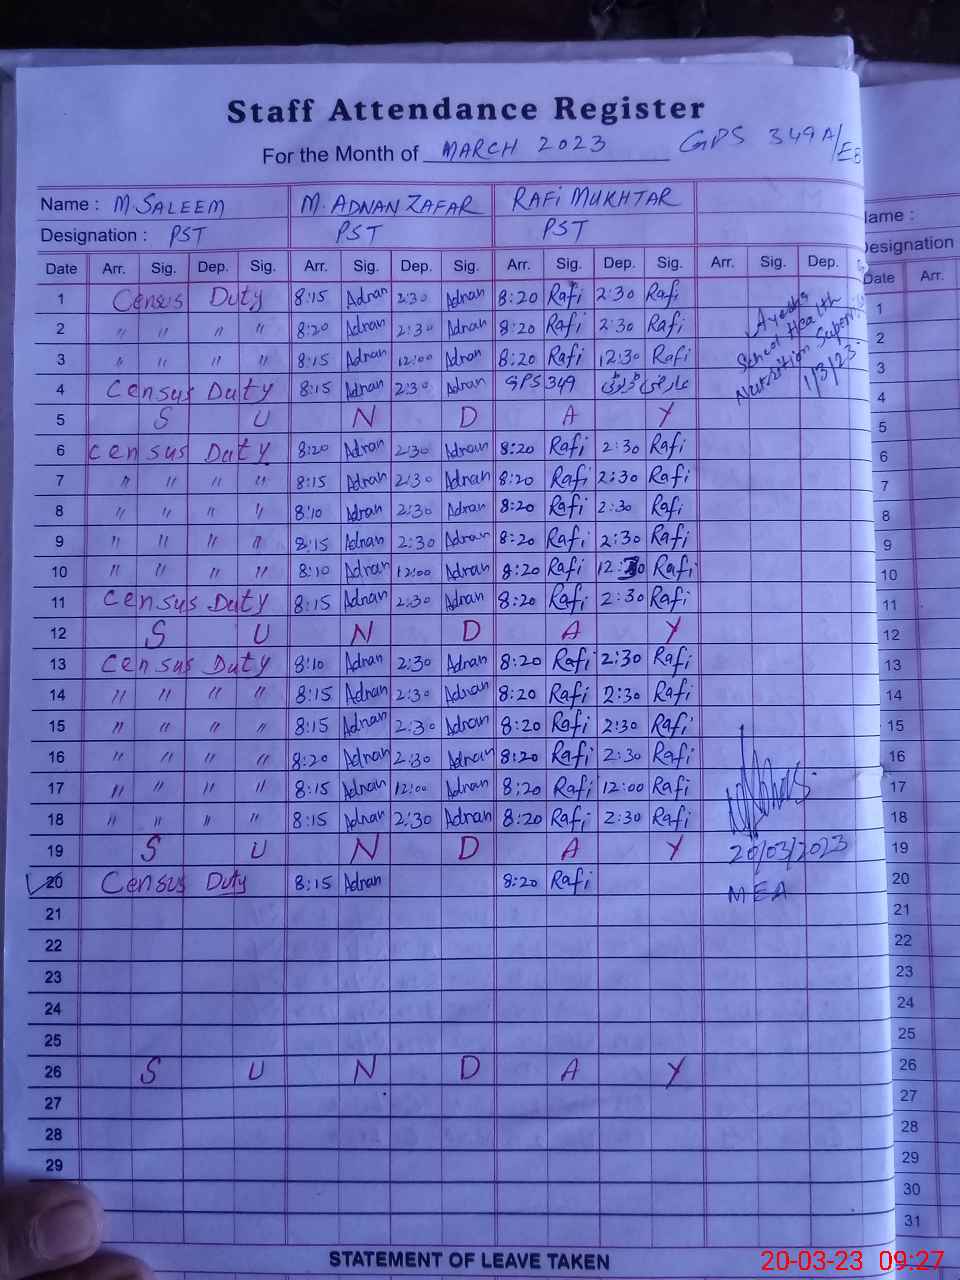 Staff Attendance Register
For the Month of MARCH 2023 GPS 349A/EB
Name : M. SALEEM M. ADNAN ZAFAR RAFI MUKHTAR ame :
Designation : PST PST PST esignation
Date Arr. Sig. Dep. Sig. Arr. Sig. Dep. Sig. Arr. Sig. Dep. Sig. Arr. Sig. Dep. Date Arr.
1 Census Duty 8:15 Adnan 2:30 Adnan 8:20 Rafi 2:30 Rafi 1
2 〃 〃 〃 〃 8:20 Adnan 2:30 Adnan 8:20 Rafi 2:30 Rafi 2
3 〃 〃 〃 〃 8:15 Adnan 12:00 Adnan 8:20 Rafi 12:30 Rafi 3
4 Census Duty 8:15 Adnan 2:30 Adnan GPS 349 عارضی ڈیوٹی 4
Ayesha
School Health
Nutrition Supervi
1/3/23
5 S U N D A Y 5
6 Census Duty 8:20 Adnan 2:30 Adnan 8:20 Rafi 2:30 Rafi 6
7 〃 〃 〃 〃 8:15 Adnan 2:30 Adnan 8:20 Rafi 2:30 Rafi 7
8 〃 〃 〃 〃 8:10 Adnan 2:30 Adnan 8:20 Rafi 2:30 Rafi 8
9 〃 〃 〃 〃 8:15 Adnan 2:30 Adnan 8:20 Rafi 2:30 Rafi 9
10 〃 〃 〃 〃 8:10 Adnan 12:00 Adnan 8:20 Rafi 12:30 Rafi 10
11 Census Duty 8:15 Adnan 2:30 Adnan 8:20 Rafi 2:30 Rafi 11
12 S U N D A Y 12
13 Census Duty 8:10 Adnan 2:30 Adnan 8:20 Rafi 2:30 Rafi 13
14 〃 〃 〃 〃 8:15 Adnan 2:30 Adnan 8:20 Rafi 2:30 Rafi 14
15 〃 〃 〃 〃 8:15 Adnan 2:30 Adnan 8:20 Rafi 2:30 Rafi 15
16 〃 〃 〃 〃 8:20 Adnan 2:30 Adnan 8:20 Rafi 2:30 Rafi 16
17 〃 〃 〃 〃 8:15 Adnan 12:00 Adnan 8:20 Rafi 12:00 Rafi 17
18 〃 〃 〃 〃 8:15 Adnan 2:30 Adnan 8:20 Rafi 2:30 Rafi 18
19 S U N D A Y 20/03/2023 19
20 Census Duty 8:15 Adnan 8:20 Rafi MEA 20
21 21
22 22
23 23
24 24
25 25
26 S U N D A Y 26
27 27
28 28
29 29
30
31
STATEMENT OF LEAVE TAKEN
20-03-23 09:27